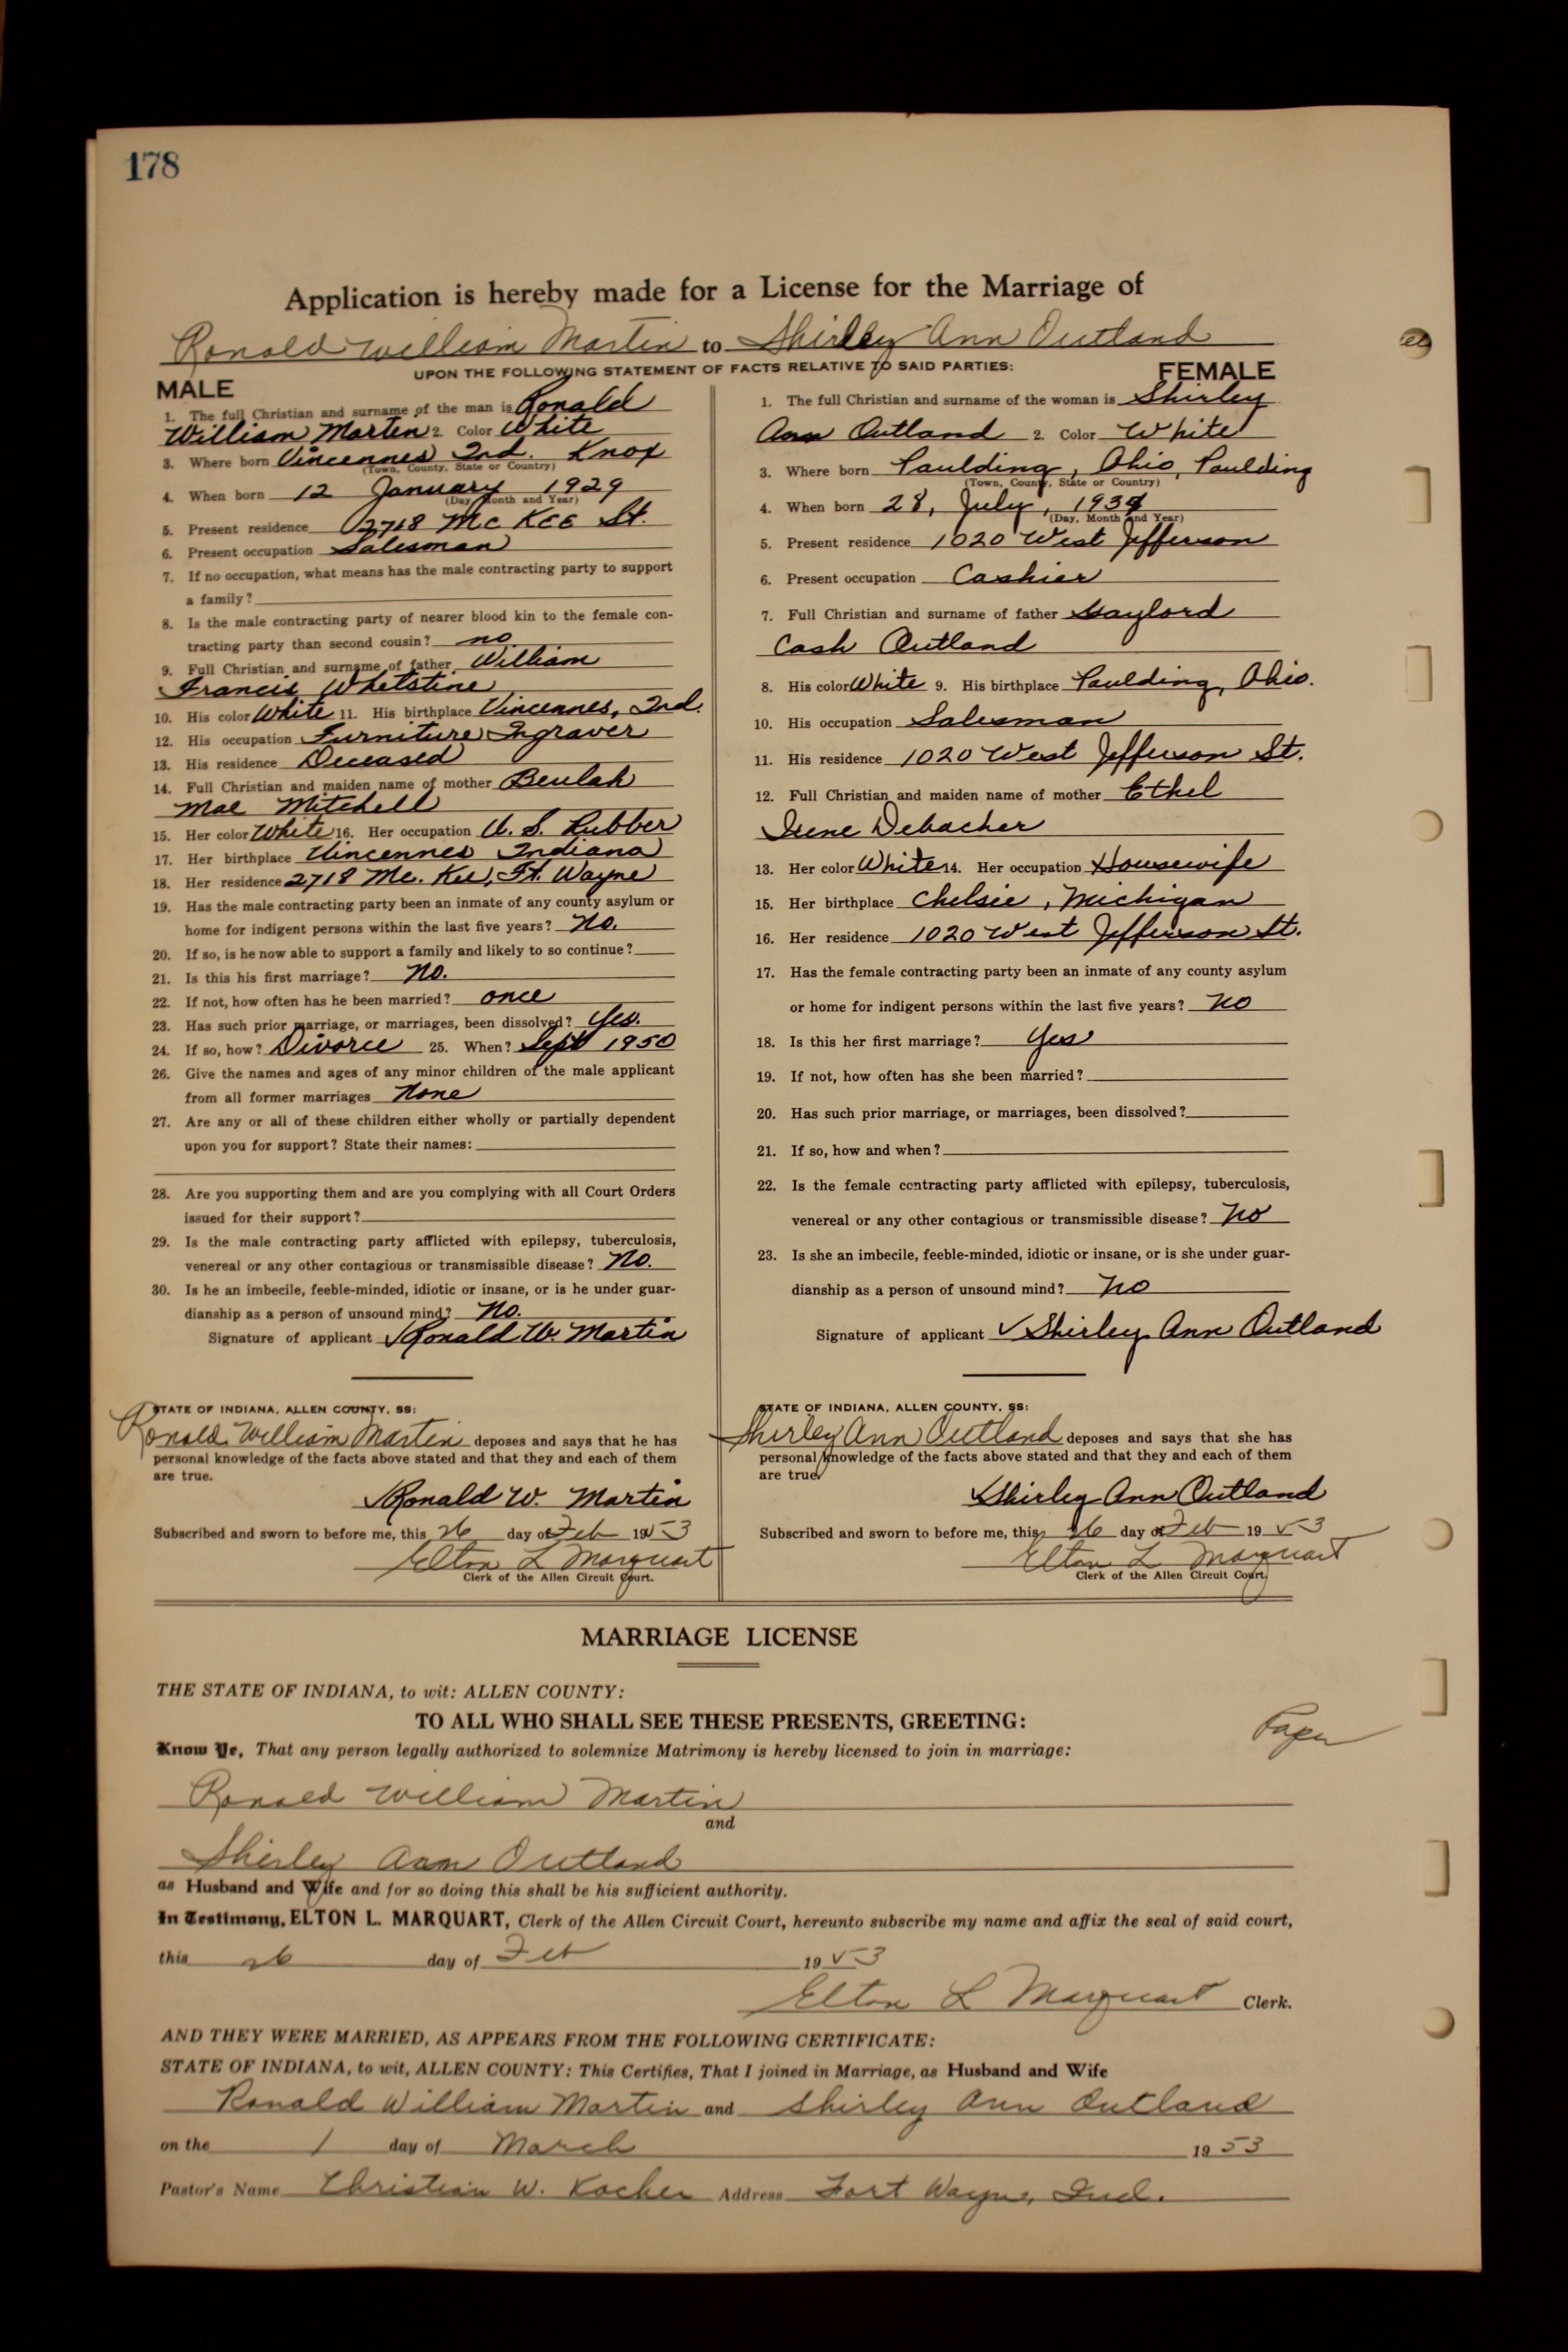 178
Application is hereby made for a License for the Marriage of
Ronald William Martin to Shirley Ann Outland
UPON THE FOLLOWING STATEMENT OF FACTS RELATIVE TO SAID PARTIES:
MALE
1. The full Christian and surname of the man is Ronald
William Martin 2. Color White
3. Where born Vincennes Ind. Knox
(Town, County, State or Country)
4. When born 12 January 1929
(Day, Month and Year)
5. Present residence 2718 Mc Kee St.
6. Present occupation Salesman
7. If no occupation, what means has the male contracting party to support
a family?
8. Is the male contracting party of nearer blood kin to the female con-
tracting party than second cousin? no
9. Full Christian and surname of father William
Francis Whetstine
10. His color White 11. His birthplace Vincennes, Ind.
12. His occupation Furniture Ingraver
13. His residence Deceased
14. Full Christian and maiden name of mother Beulah
Mae Mitchell
15. Her color White 16. Her occupation U. S. Rubber
17. Her birthplace Vincennes Indiana
18. Her residence 2718 Mc. Kee, Ft. Wayne
19. Has the male contracting party been an inmate of any county asylum or
home for indigent persons within the last five years? No.
20. If so, is he now able to support a family and likely to so continue?
21. Is this his first marriage? No.
22. If not, how often has he been married? once
23. Has such prior marriage, or marriages, been dissolved? Yes.
24. If so, how? Divorce 25. When? Sept 1950
26. Give the names and ages of any minor children of the male applicant
from all former marriages None
27. Are any or all of these children either wholly or partially dependent
upon you for support? State their names:
28. Are you supporting them and are you complying with all Court Orders
issued for their support?
29. Is the male contracting party afflicted with epilepsy, tuberculosis,
venereal or any other contagious or transmissible disease? No.
30. Is he an imbecile, feeble-minded, idiotic or insane, or is he under guar-
dianship as a person of unsound mind? No.
Signature of applicant Ronald W. Martin
STATE OF INDIANA, ALLEN COUNTY, SS:
Ronald William Martin deposes and says that he has
personal knowledge of the facts above stated and that they and each of them
are true.
Ronald W. Martin
Subscribed and sworn to before me, this 26 day of Feb 1953
Elton L Marquart
Clerk of the Allen Circuit Court.
FEMALE
1. The full Christian and surname of the woman is Shirley
Ann Outland 2. Color White
3. Where born Paulding, Ohio, Paulding
(Town, County, State or Country)
4. When born 28, July, 1934
(Day, Month and Year)
5. Present residence 1020 West Jefferson
6. Present occupation Cashier
7. Full Christian and surname of father Gaylord
Cash Outland
8. His color White 9. His birthplace Paulding, Ohio.
10. His occupation Salesman
11. His residence 1020 West Jefferson St.
12. Full Christian and maiden name of mother Ethel
Irene Debacher
13. Her color White 14. Her occupation Housewife
15. Her birthplace Chelsie, Michigan
16. Her residence 1020 West Jefferson St.
17. Has the female contracting party been an inmate of any county asylum
or home for indigent persons within the last five years? no
18. Is this her first marriage? Yes
19. If not, how often has she been married?
20. Has such prior marriage, or marriages, been dissolved?
21. If so, how and when?
22. Is the female contracting party afflicted with epilepsy, tuberculosis,
venereal or any other contagious or transmissible disease? no
23. Is she an imbecile, feeble-minded, idiotic or insane, or is she under guar-
dianship as a person of unsound mind? no
Signature of applicant Shirley Ann Outland
STATE OF INDIANA, ALLEN COUNTY, SS:
Shirley Ann Outland deposes and says that she has
personal knowledge of the facts above stated and that they and each of them
are true.
Shirley Ann Outland
Subscribed and sworn to before me, this 26 day of Feb 1953
Elton L Marquart
Clerk of the Allen Circuit Court.
MARRIAGE LICENSE
THE STATE OF INDIANA, to wit: ALLEN COUNTY:
TO ALL WHO SHALL SEE THESE PRESENTS, GREETING:
Know Ye, That any person legally authorized to solemnize Matrimony is hereby licensed to join in marriage:
Ronald William Martin
and
Shirley Ann Outland
as Husband and Wife and for so doing this shall be his sufficient authority.
In Testimony, ELTON L. MARQUART, Clerk of the Allen Circuit Court, hereunto subscribe my name and affix the seal of said court,
this 26 day of Feb 1953
Elton L Marquart Clerk.
AND THEY WERE MARRIED, AS APPEARS FROM THE FOLLOWING CERTIFICATE:
STATE OF INDIANA, to wit, ALLEN COUNTY: This Certifies, That I joined in Marriage, as Husband and Wife
Ronald William Martin and Shirley Ann Outland
on the 1 day of March 1953
Pastor's Name Christian W. Kocher Address Fort Wayne, Ind.